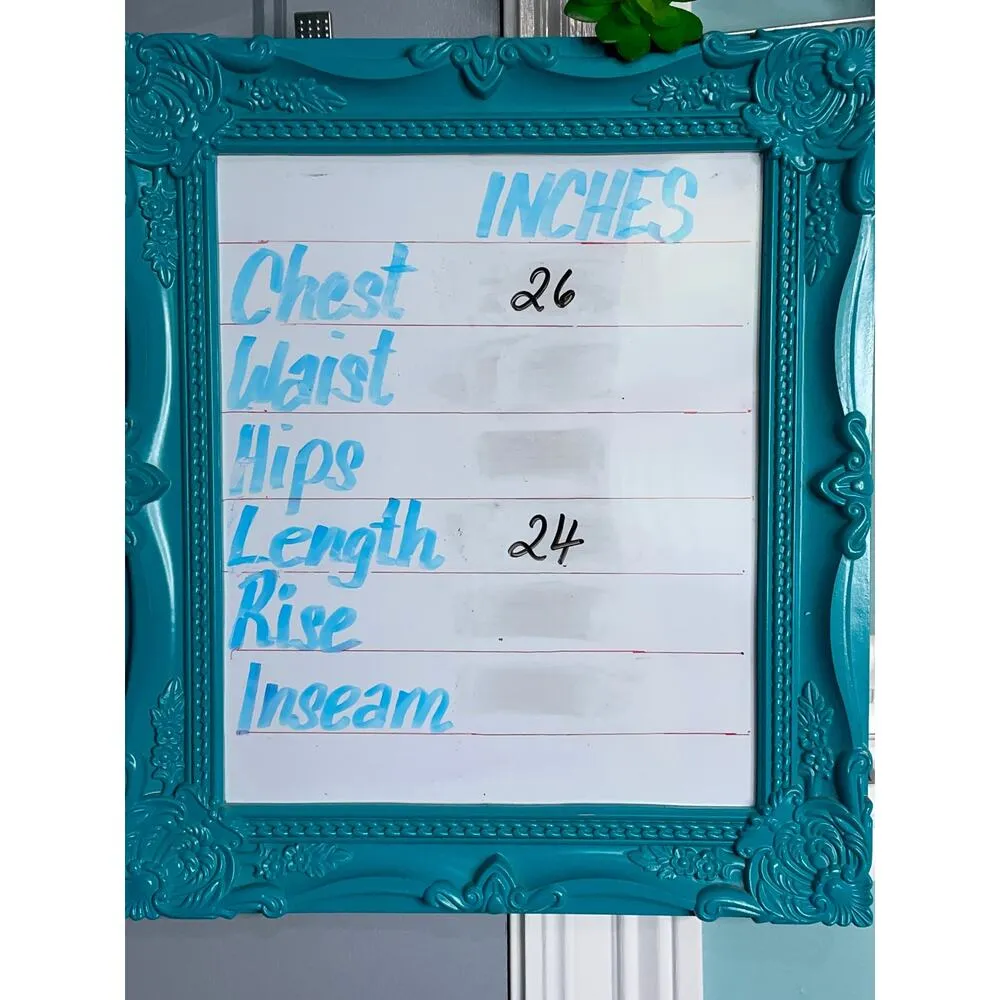 INCHES
Chest 26
Waist
Hips
Length 24
Rise
Inseam